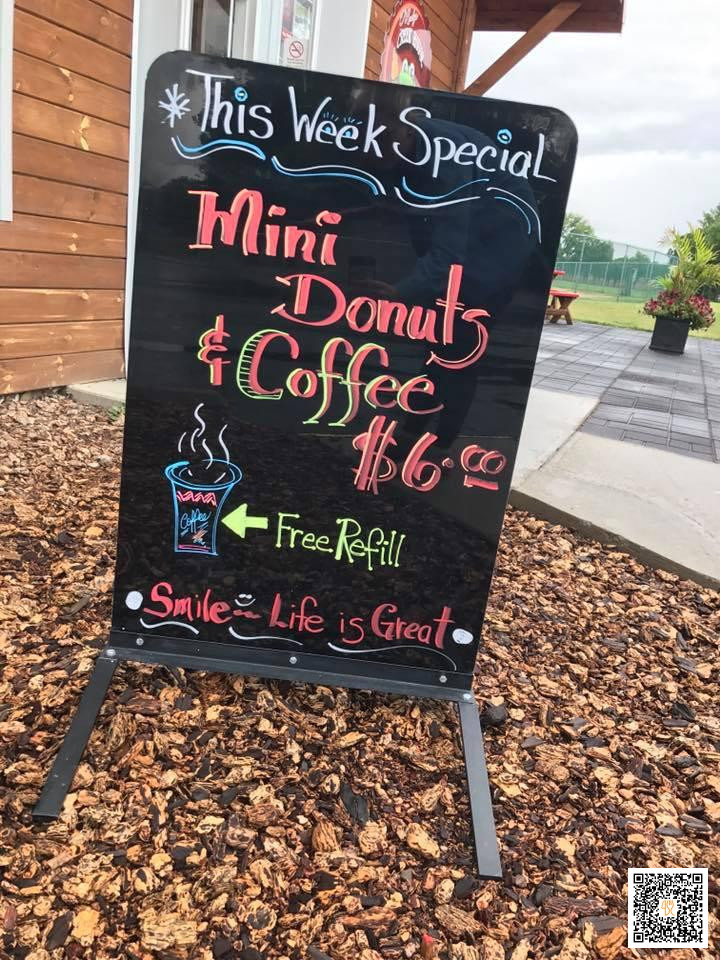 This Week Special
Mini
Donuts
& Coffee
$6.00
Coffee
Free Refill
Smile Life is Great